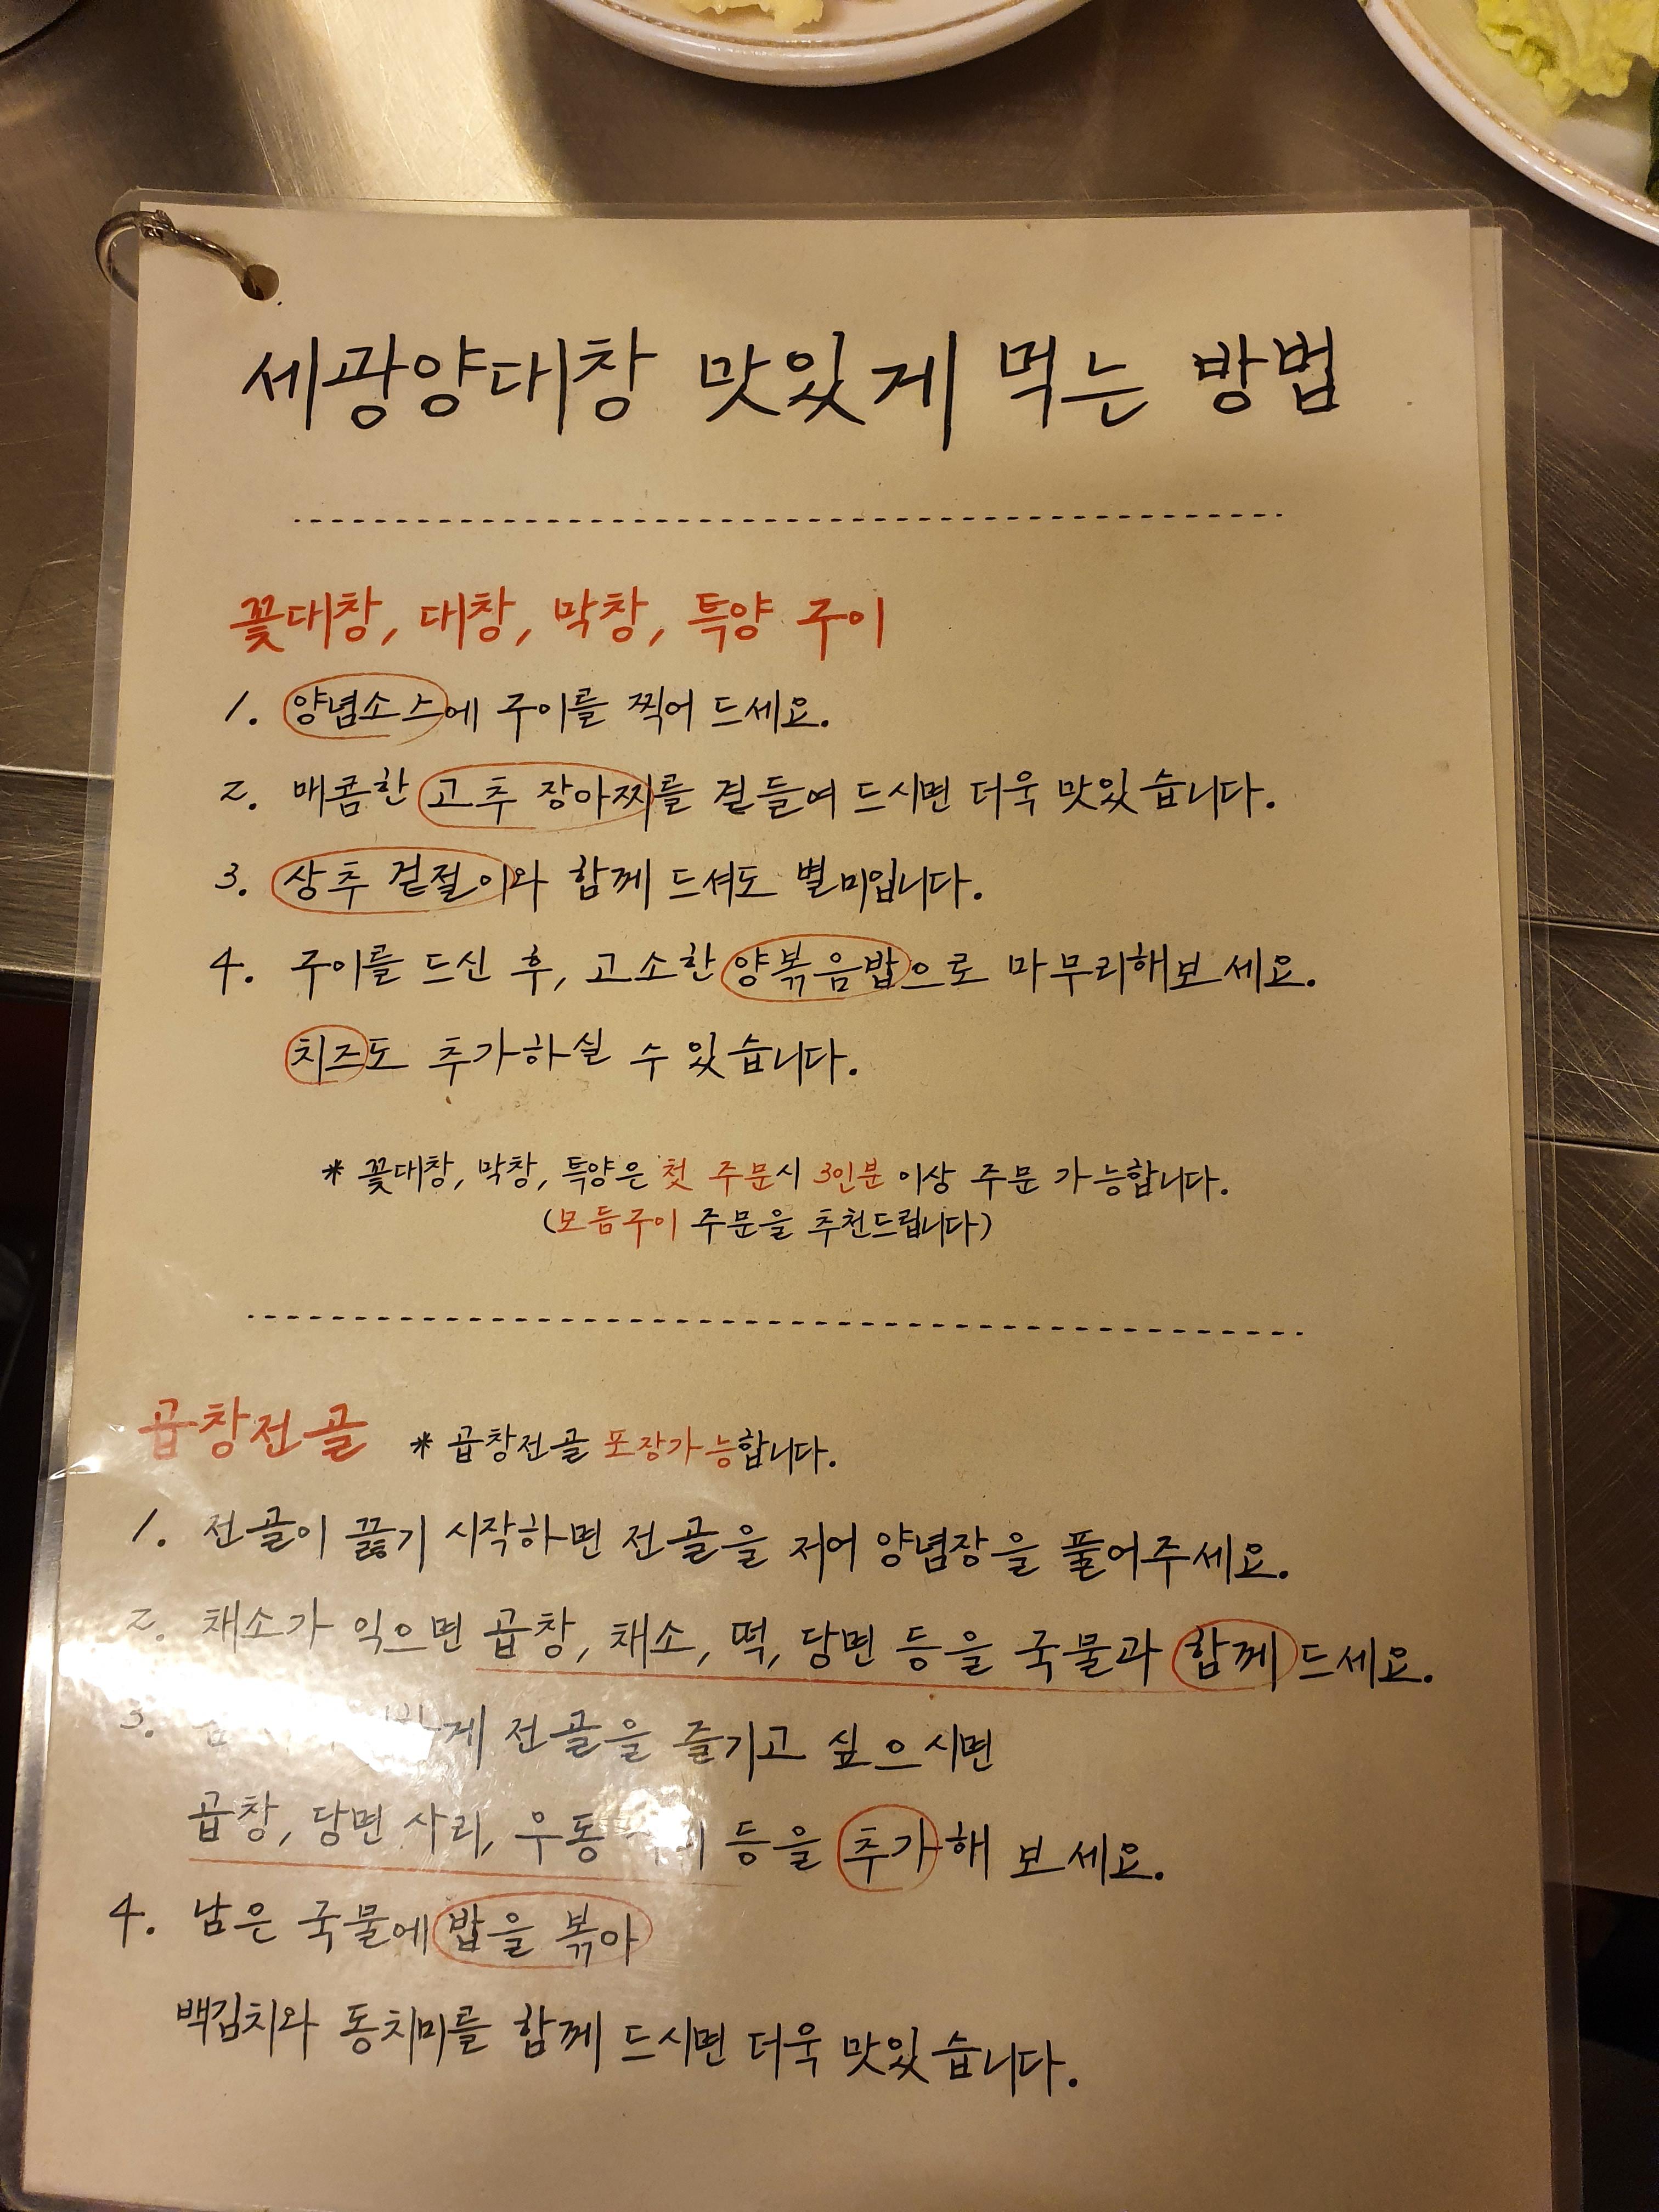 세광양대창 맛있게 먹는 방법
꽃대창, 대창, 막창, 특양 구이
1. 양념소스에 구이를 찍어 드세요.
2. 매콤한 고추 장아찌를 곁들여 드시면 더욱 맛있습니다.
3. 상추 겉절이와 함께 드셔도 별미입니다.
4. 구이를 드신 후, 고소한 양볶음밥으로 마무리해보세요.
치즈도 추가하실 수 있습니다.
* 꽃대창, 막창, 특양은 첫 주문시 3인분 이상 주문 가능합니다.
(모듬구이 주문을 추천드립니다)
곱창전골 * 곱창전골 포장가능합니다.
1. 전골이 끓기 시작하면 전골을 저어 양념장을 풀어주세요.
2. 채소가 익으면 곱창, 채소, 떡, 당면 등을 국물과 함께 드세요.
3. 전골을 즐기고 싶으시면
곱창, 당면 사리, 우동 등을 추가해 보세요.
4. 남은 국물에 밥을 볶아
백김치와 동치미를 함께 드시면 더욱 맛있습니다.